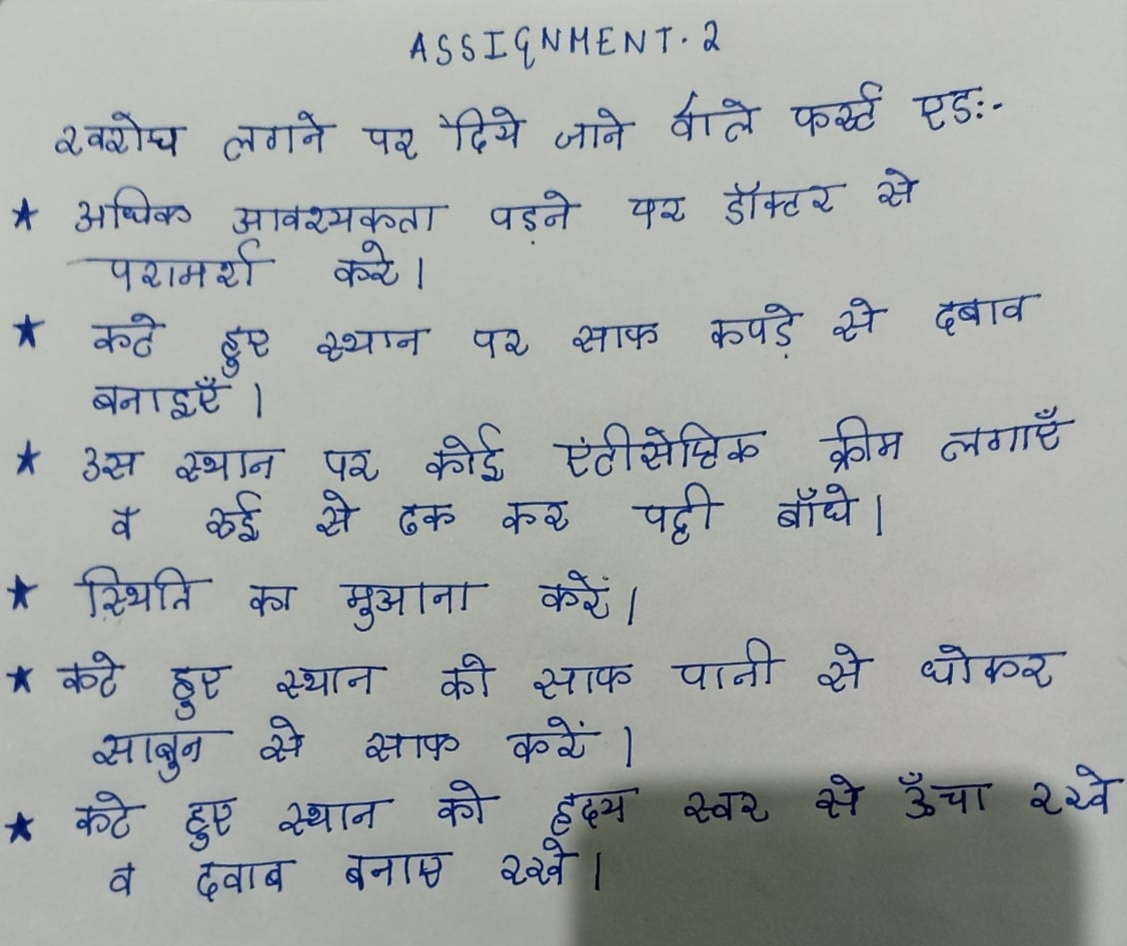 ASSIGNMENT. 2
खरोच लगने पर दिये जाने वाले फर्स्ट एड:-
★ अधिक आवश्यकता पड़ने पर डॉक्टर से
परामर्श करे।
★ कटे हुए स्थान पर साफ कपड़े से दबाव
बनाइएँ।
★ उस स्थान पर कोई एंटीसेप्टिक क्रीम लगाएँ
व रुई से ढक कर पट्टी बाँधे।
★ स्थिति का मुआना करें।
★ कटे हुए स्थान को साफ पानी से धोकर
साबुन से साफ करें।
★ कटे हुए स्थान को हृदय स्वर से ऊँचा रखे
व दवाब बनाए रखे।